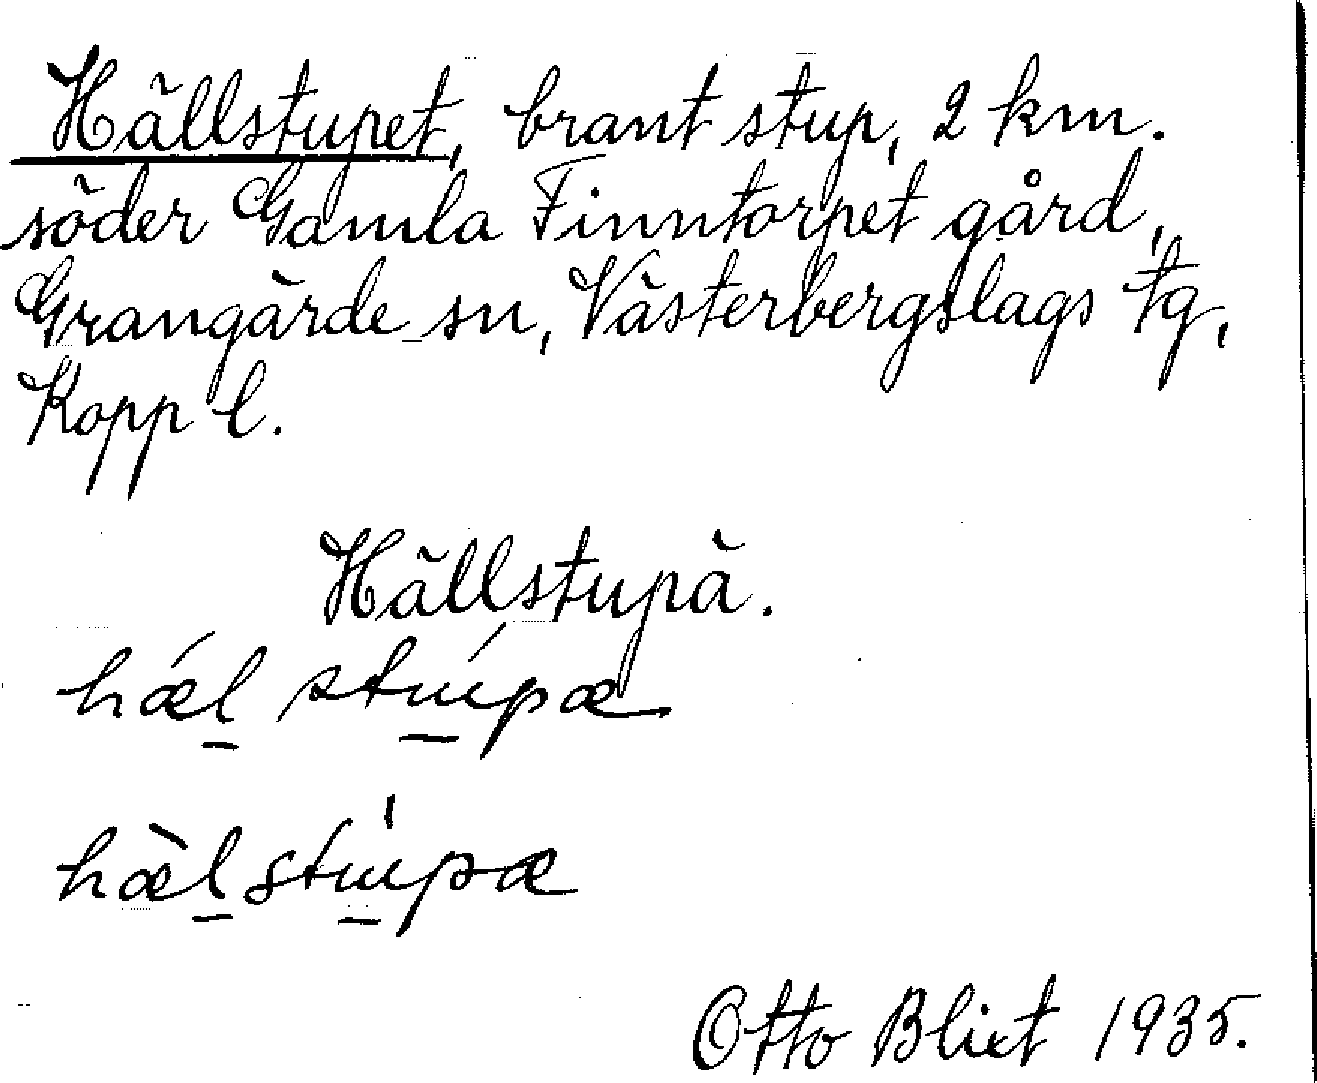 Hällstupet, brant stup, 2 km.
söder Gamla Finntorpet gård,
Grangärde sn, Västerbergslags fg,
Kopp l.
Hällstupä.
hǽl stúpæ
hæ̀lstúpæ
Otto Blixt 1935.